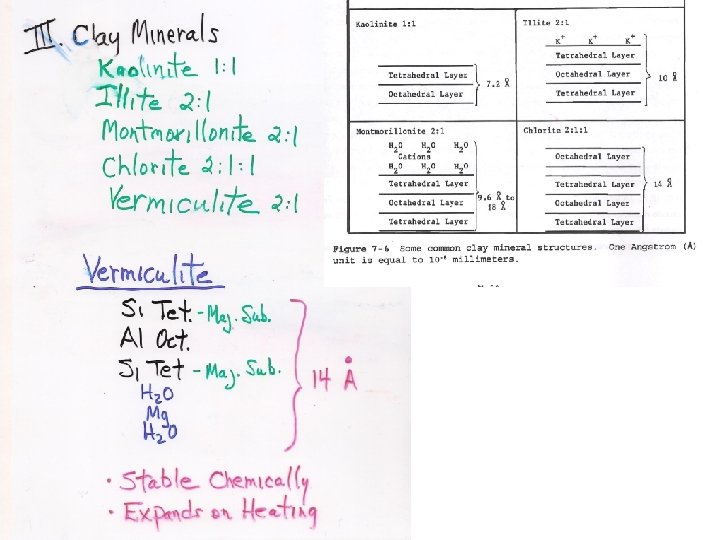 III. Clay Minerals
Kaolinite 1:1
Illite 2:1
Montmorillonite 2:1
Chlorite 2:1:1
Vermiculite 2:1
Vermiculite
Si Tet. - Maj. Sub.
Al Oct.
Si Tet - Maj. Sub.
H2O
Mg
H2O
14 Å
· Stable Chemically
· Expands on Heating
Kaolinite 1:1
Tetrahedral Layer
Octahedral Layer
7.2 Å
Illite 2:1
K+ K+ K+
Tetrahedral Layer
Octahedral Layer
Tetrahedral Layer
10 Å
Montmorillonite 2:1
H2O H2O H2O
Cations
H2O H2O H2O
Tetrahedral Layer
Octahedral Layer
Tetrahedral Layer
9.6 Å to
18 Å
Chlorite 2:1:1
Octahedral Layer
Tetrahedral Layer
Octahedral Layer
Tetrahedral Layer
14 Å
Figure 7-6 Some common clay mineral structures. One Angstrom (Å)
unit is equal to 10⁻⁸ millimeters.